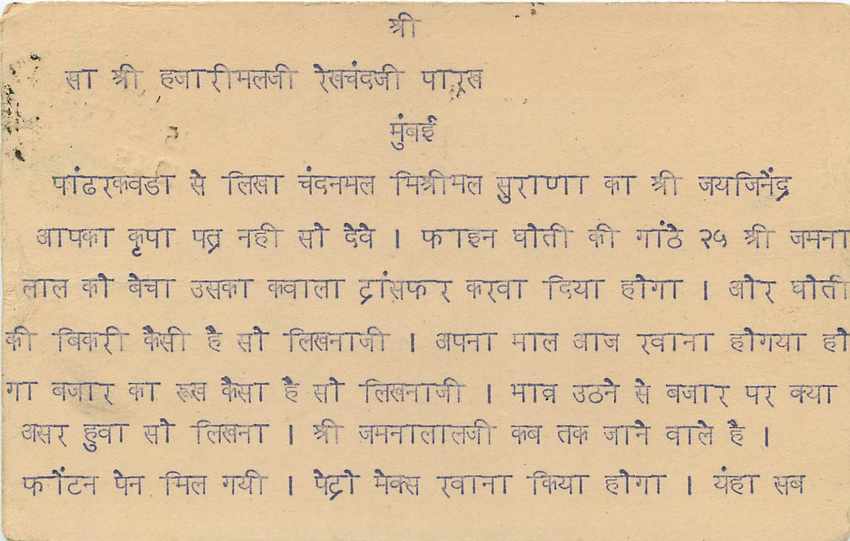 श्री
सा श्री हजारीमलजी रेखचंदजी पारख
मुंबई
पांढरकवडा से लिखा चंदनमल मिश्रीमल सुराणा का श्री जयजिनेंद्र
आपका कृपा पत्र नही सो देवे । फाइन घोती की गांठे २५ श्री जमना
लाल को बेचा उसका कवाला ट्रांसफर करवा दिया होगा । ओर घोती
की बिकरी कैसी है सो लिखनाजी । अपना माल आज रवाना होगया हो
गा बजार का रूख कैसा है सो लिखनाजी । भाव उठने से बजार पर क्या
असर हुवा सो लिखना । श्री जमनालालजी कब तक जाने वाले है ।
फोंटन पेन मिल गयी । पेट्रो मेक्स रवाना किया होगा । यंहा सब